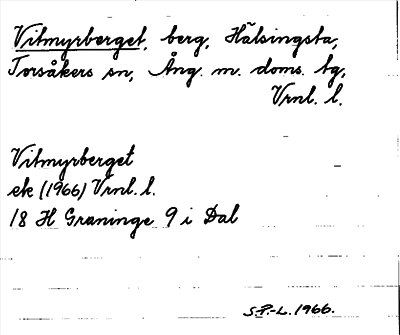 Vitmyrberget, berg, Hälsingsta,
Torsåkers sn, Ång. m. doms. tg,
Vrnl. l.
Vitmyrberget
ek (1966) Vrnl. l.
18 H Graninge 9 i Dal
S.P.-L. 1966.